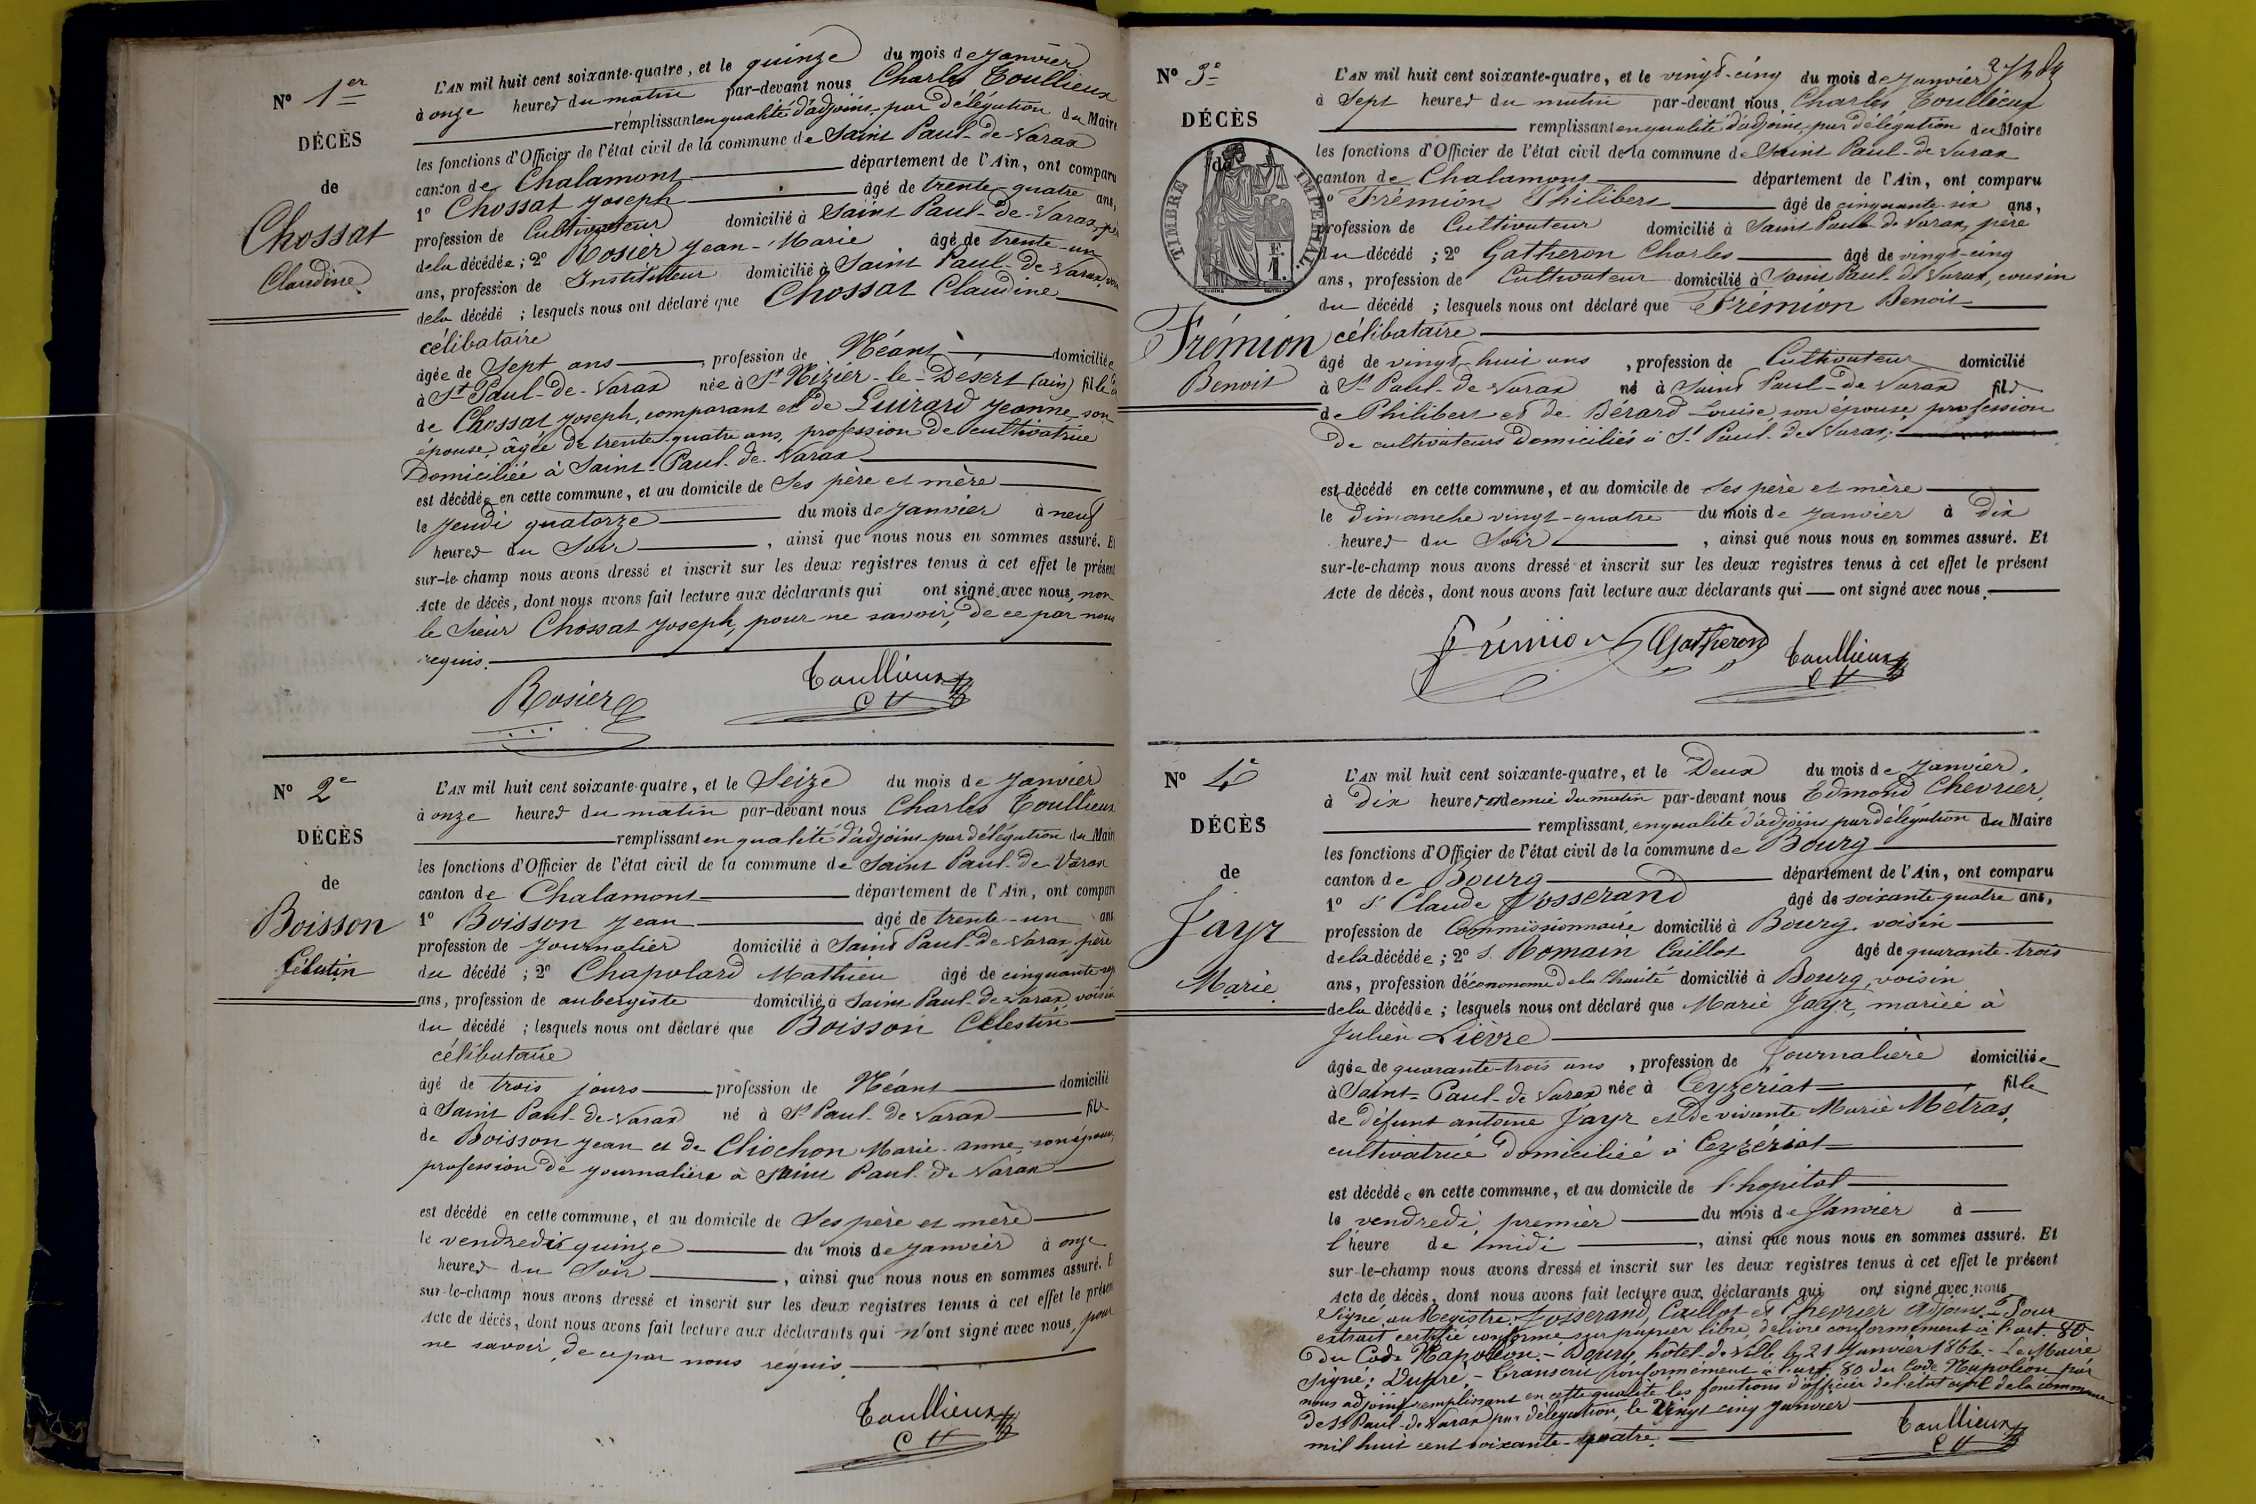 N° 1er
DÉCÈS
de
Chossat
Claudine
L'AN mil huit cent soixante-quatre, et le quinze du mois de Janvier
à onze heures du matin par-devant nous Charles Toullieux
remplissant en qualité d'adjoint par délégation du Maire
les fonctions d'Officier de l'état civil de la commune de Saint Paul-de-Varax
canton de Chalamont département de l'Ain, ont comparu
1° Chossat Joseph âgé de trente-quatre ans,
profession de Cultivateur domicilié à Saint Paul-de-Varax, père
de la décédée ; 2° Rosier Jean-Marie âgé de trente-un
ans, profession de Instituteur domicilié à Saint Paul-de-Varax,
de la décédé ; lesquels nous ont déclaré que Chossat Claudine
célibataire
âgée de Sept ans, profession de Néant domiciliée
à St Paul-de-Varax née à St Nizier-le-Désert (ain) fille
de Chossat Joseph, comparant et de Guirard Jeanne son
épouse, âgée de trente-quatre ans, profession de cultivatrice
Domiciliée à Saint-Paul-de-Varax
est décédée en cette commune, et au domicile de Ses père et mère
le Jeudi quatorze du mois de Janvier à neuf
heures du Soir, ainsi que nous nous en sommes assuré. Et
sur-le-champ nous avons dressé et inscrit sur les deux registres tenus à cet effet le présent
Acte de décès, dont nous avons fait lecture aux déclarants qui ont signé avec nous, non
le Sieur Chossat Joseph, pour ne savoir, de ce par nous
requis.
Rosier
Toullieux
N° 2e
DÉCÈS
de
Boisson
Célestin
L'AN mil huit cent soixante-quatre, et le Seize du mois de Janvier
à onze heures du matin par-devant nous Charles Toullieux
remplissant en qualité d'adjoint par délégation du Maire
les fonctions d'Officier de l'état civil de la commune de Saint Paul-de Varax
canton de Chalamont département de l'Ain, ont comparu
1° Boisson Jean âgé de trente-un ans
profession de Journalier domicilié à Saint Paul-de-Varax, père
du décédé ; 2° Chapolard Mathieu âgé de cinquante
ans, profession de aubergiste domicilié à Saint Paul-de-Varax, voisin
du décédé ; lesquels nous ont déclaré que Boisson Célestin
célibataire
âgé de trois jours profession de Néant domicilié
à Saint Paul-de-Varax né à St Paul-de Varax fils
de Boisson Jean et de Chochon Marie-anne, son épouse,
profession de Journalière à Saint Paul-de Varax
est décédé en cette commune, et au domicile de Ses père et mère
le vendredi quinze du mois de Janvier à onze
heures du Soir, ainsi que nous nous en sommes assuré. E
sur-le-champ nous avons dressé et inscrit sur les deux registres tenus à cet effet le présent
Acte de décès, dont nous avons fait lecture aux déclarants qui n'ont signé avec nous, pour
ne savoir, de ce par nous requis.
Toullieux
N° 3e
DÉCÈS
de
TIMBRE IMPÉRIAL
1 F.
Frémion
Benoit
L'AN mil huit cent soixante-quatre, et le vingt-cinq du mois de Janvier
à Sept heures du matin par-devant nous Charles Toullieux
remplissant en qualité d'adjoint par délégation du Maire
les fonctions d'Officier de l'état civil de la commune de Saint Paul-de Varax
canton de Chalamont département de l'Ain, ont comparu
1° Frémion Philibert âgé de cinquante-six ans,
profession de Cultivateur domicilié à Saint Paul-de Varax, père
du décédé ; 2° Gatheron Charles âgé de vingt-cinq
ans, profession de Cultivateur domicilié à Saint Paul-de Varax, cousin
du décédé ; lesquels nous ont déclaré que Frémion Benoit
célibataire
âgé de vingt-huit ans, profession de Cultivateur domicilié
à St Paul-de Varax né à Saint Paul-de Varax fils
de Philibert et de Bérard Louise, son épouse, profession
de cultivateurs domiciliés à St Paul-de Varax,
est décédé en cette commune, et au domicile de Ses père et mère
le Dimanche vingt-quatre du mois de Janvier à Dix
heures du Soir, ainsi que nous nous en sommes assuré. Et
sur-le-champ nous avons dressé et inscrit sur les deux registres tenus à cet effet le présent
Acte de décès, dont nous avons fait lecture aux déclarants qui ont signé avec nous.
Frémion Gatheron Toullieux
N° 4e
DÉCÈS
de
Jayr
Marie
L'AN mil huit cent soixante-quatre, et le Deux du mois de Janvier,
à Dix heures et demie du matin par-devant nous Edmond Chevrier,
remplissant en qualité d'adjoint par délégation du Maire
les fonctions d'Officier de l'état civil de la commune de Bourg
canton de Bourg département de l'Ain, ont comparu
1° S. Claude Josserand âgé de soixante-quatre ans,
profession de Commissionnaire domicilié à Bourg, voisin
de la décédée ; 2° S. Romain Caillot âgé de quarante-trois
ans, profession d'économe de la Charité domicilié à Bourg, voisin
de la décédée ; lesquels nous ont déclaré que Marie Jayr, mariée à
Julien Lièvre
âgée de quarante-trois ans, profession de Journalière domiciliée
à Saint-Paul-de Varax née à Ceyzériat fille
de défunt antoine Jayr et de vivante Marie Métras,
cultivatrice domiciliée à Ceyzériat
est décédée en cette commune, et au domicile de l'hopital
le vendredi premier du mois de Janvier à
l'heure de midi, ainsi que nous nous en sommes assuré. Et
sur-le-champ nous avons dressé et inscrit sur les deux registres tenus à cet effet le présent
Acte de décès, dont nous avons fait lecture aux déclarants qui ont signé avec nous
Signé au Registre: Josserand, Caillot et Chevrier adjoint. Pour
extrait certifié conforme sur papier libre, délivré conformément à l'art. 80
du Code Napoléon. - Bourg, hôtel-de Ville le 21 Janvier 1864. - Le Maire
Signé: Dupré. - Transcrit conformément à l'art. 80 du Code Napoléon par
nous adjoint remplissant en cette qualité les fonctions d'officier de l'état civil de la commune
de St Paul-de Varax par délégation, le Vingt-cinq Janvier
mil huit cent soixante-quatre.
Toullieux